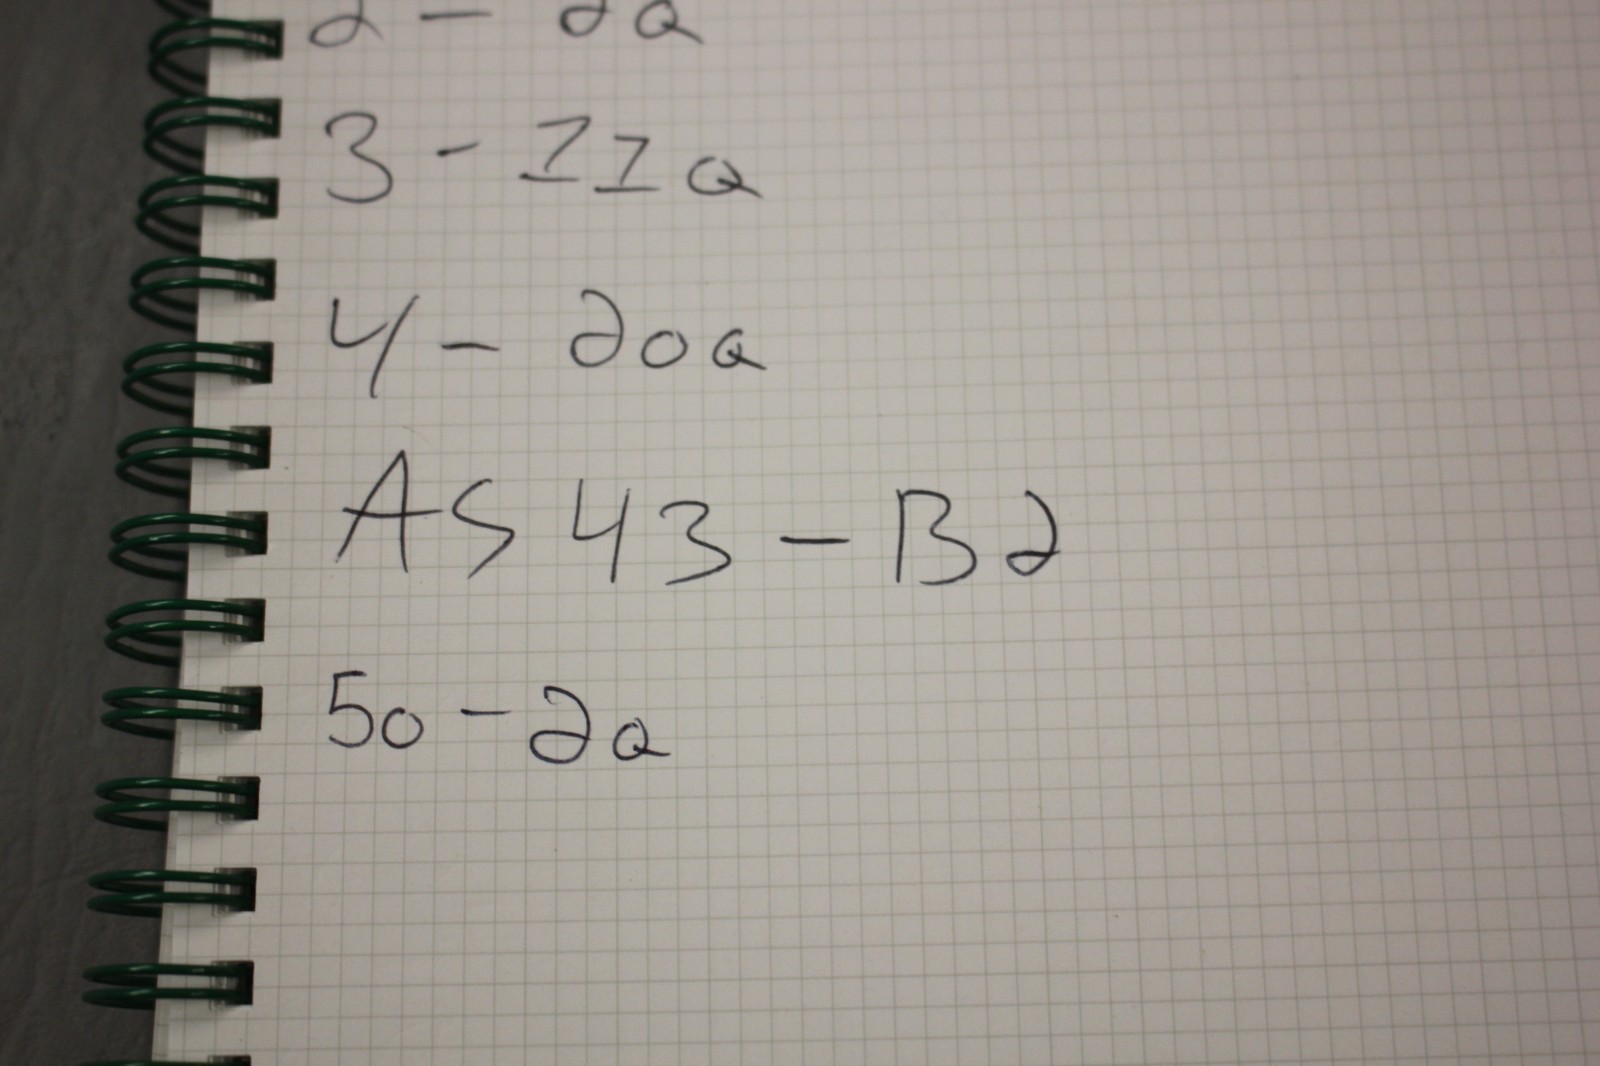 2 - 2a
3 - 11a
4 - 20a
AS 43 - B2
50 - 2a